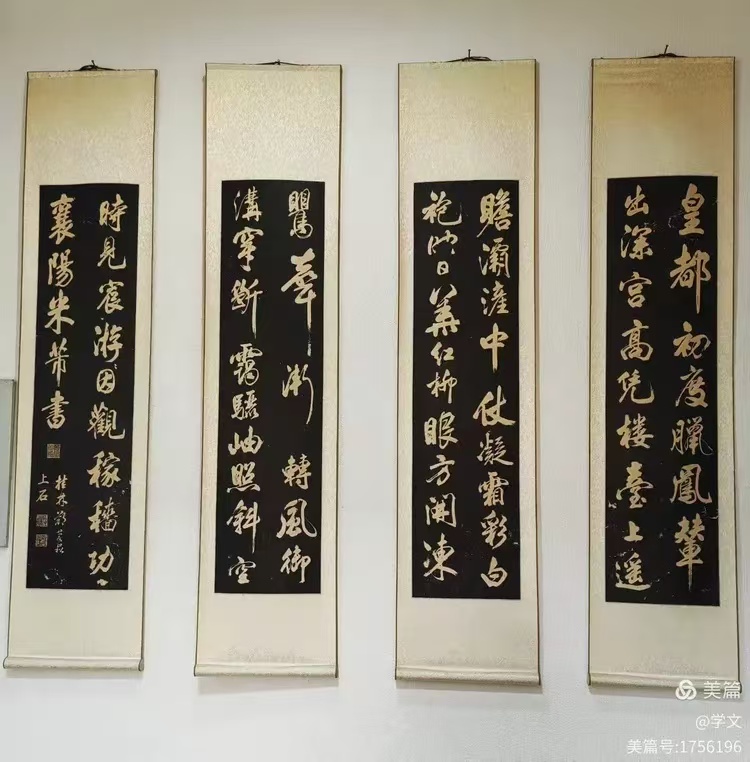 皇都初度臘鳳輦
出深宫高凭楼臺上遥
瞻灞滻中仗凝霜彩白
袍映日華红柳眼方開凍
鸎聲漸轉風御
溝穿斷靄驪岫照斜空
時見宸游因觀稼穡功
襄陽米芾書
桂林
上石
美篇
@学文
美篇号:1756196